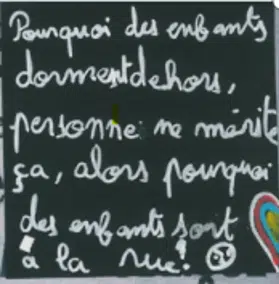 Pourquoi des enfants
dorment dehors,
personne ne mérite
ça, alors pourquoi
des enfants sont
à la rue!